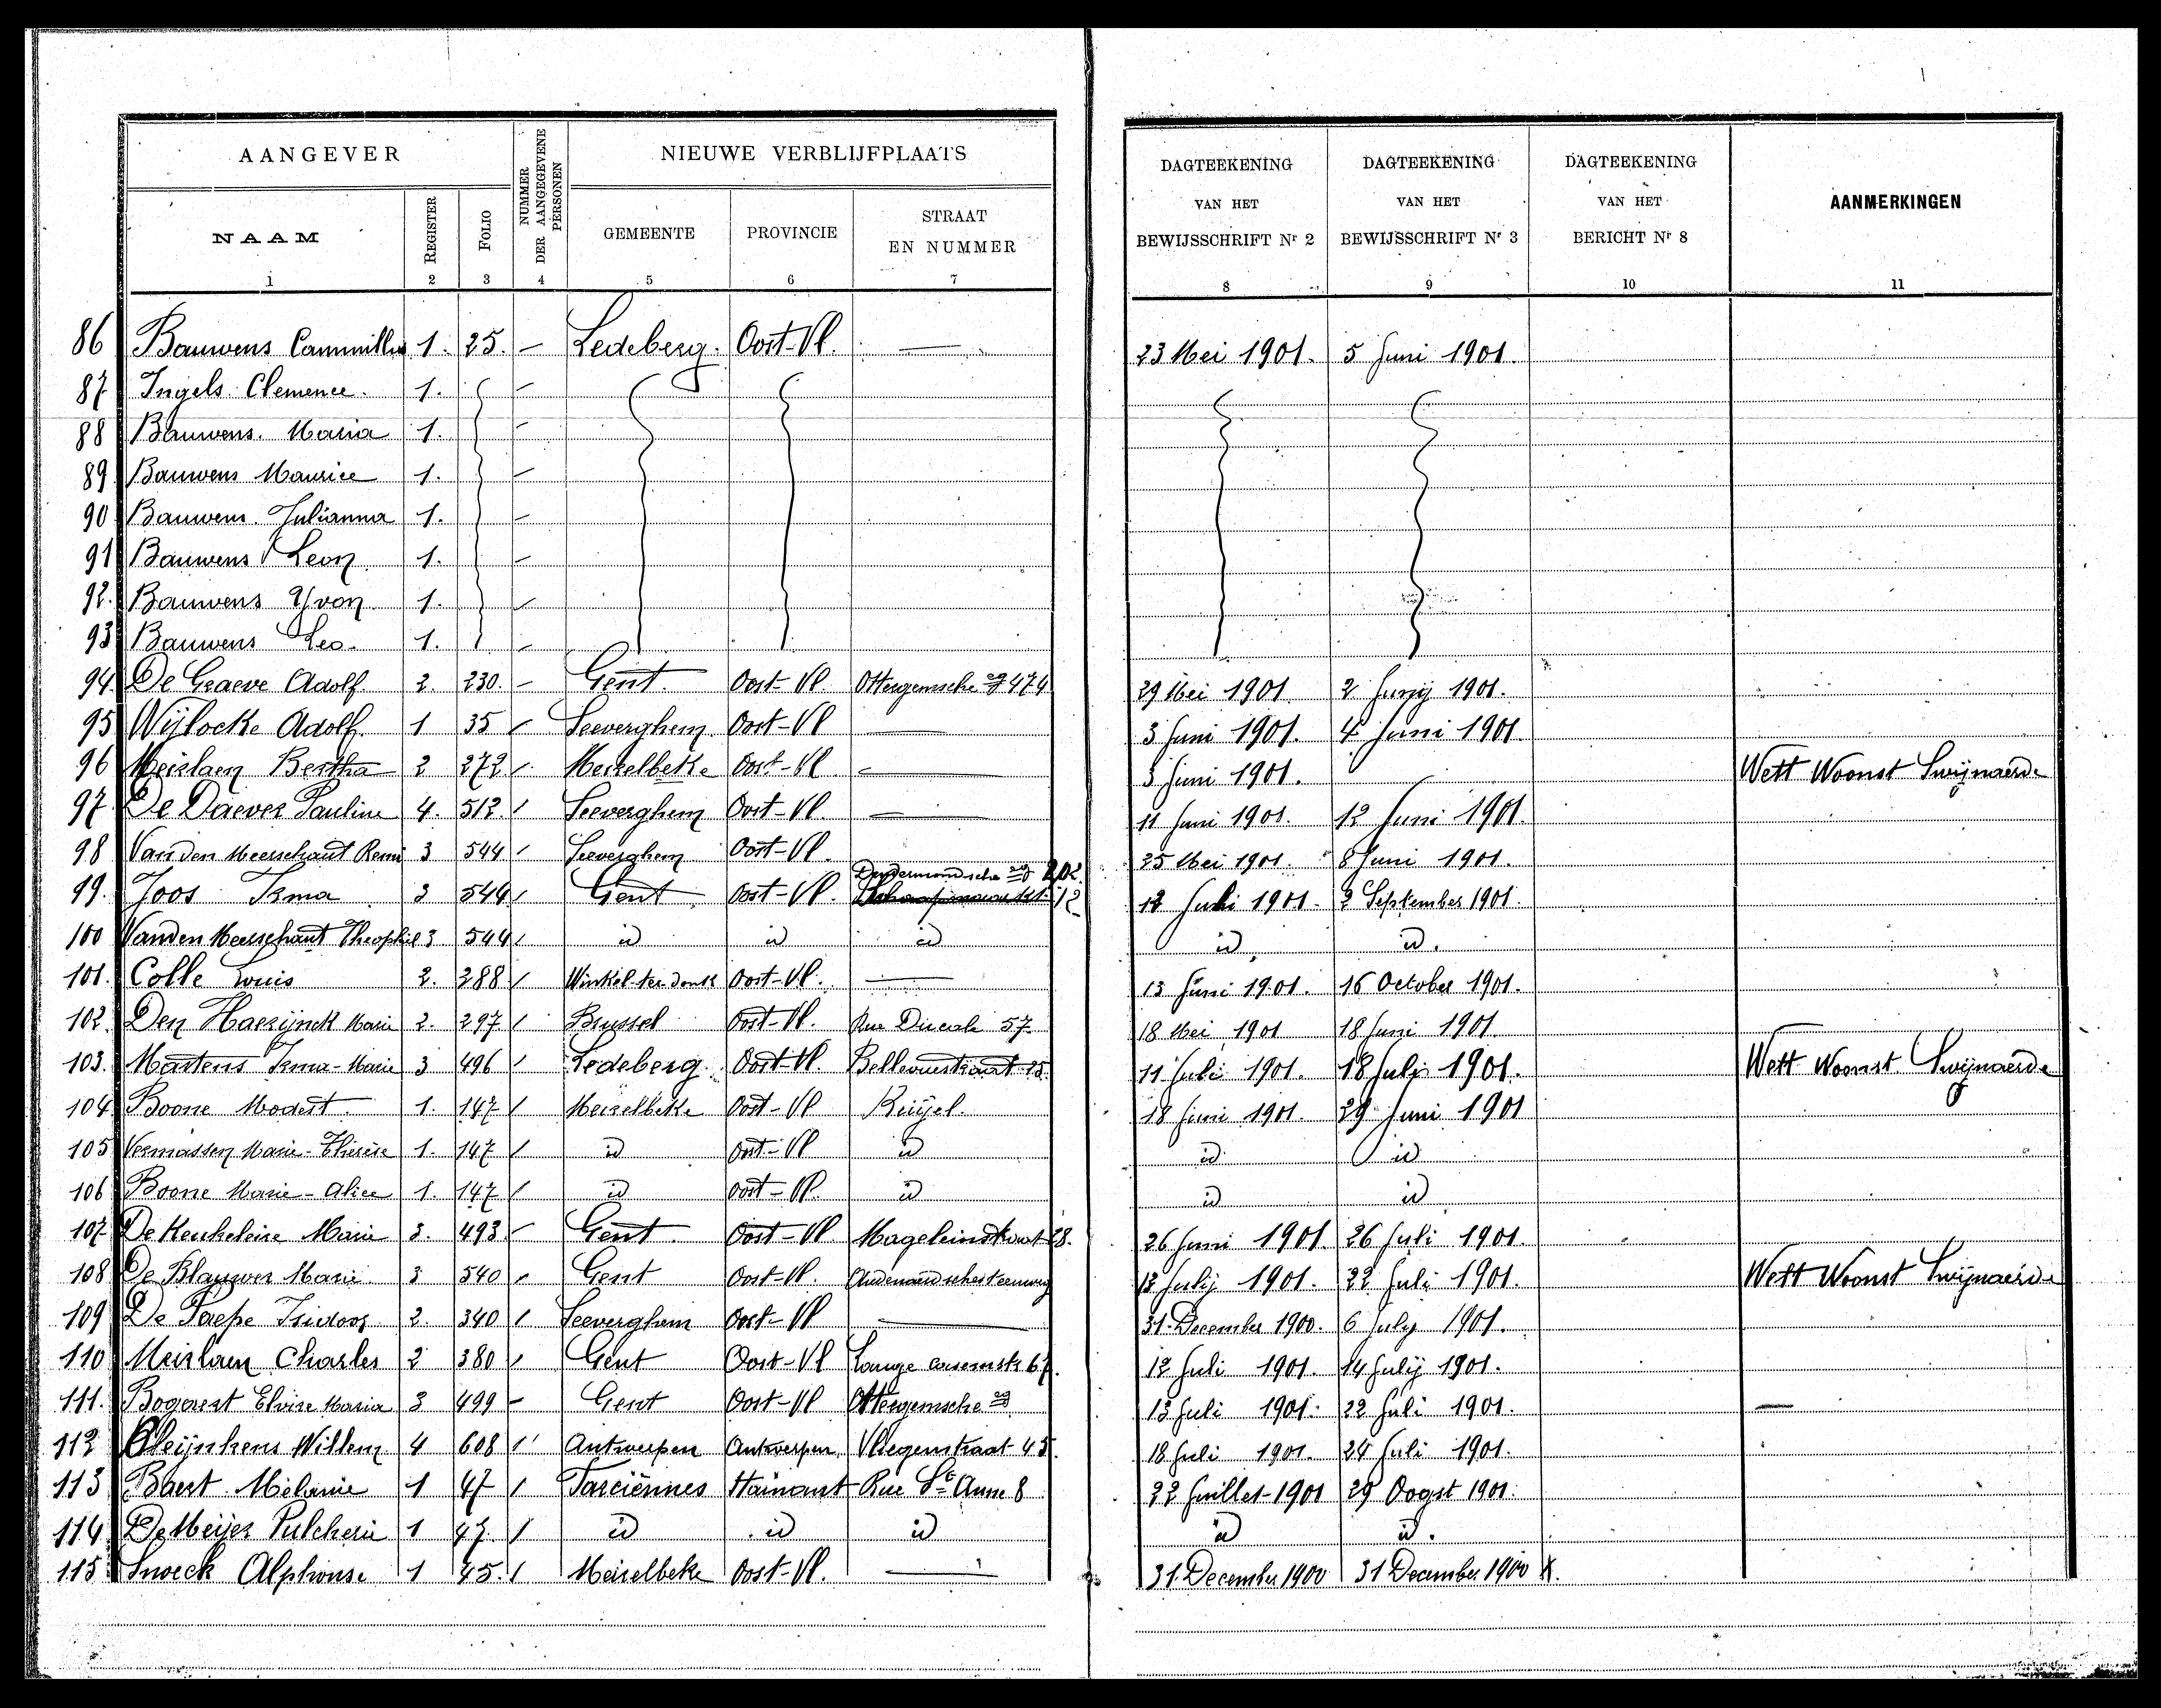 AANGEVER
NUMMER DER AANGEGEVENE PERSONEN
NIEUWE VERBLIJFPLAATS
DAGTEEKENING VAN HET BEWIJSSCHRIFT Nr 2
DAGTEEKENING VAN HET BEWIJSSCHRIFT Nr 3
DAGTEEKENING VAN HET BERICHT Nr 8
AANMERKINGEN
NAAM REGISTER FOLIO GEMEENTE PROVINCIE STRAAT EN NUMMER
1 2 3 4 5 6 7 8 9 10 11
86 Bauwens Cammillus 1. 25. — Ledeberg. Oost-Vl. — 23 Mei 1901. 5 Juni 1901.
87 Ingels Clemence. 1. —
88 Bauwens. Maria 1. —
89 Bauwens Maurice 1. —
90 Bauwens Julianna 1. —
91 Bauwens Leon 1. —
92. Bauwens Yvon 1. —
93 Bauwens Leo. 1. —
94. De Graeve Adolf. 2. 230. — Gent. Oost-Vl. Ottergemsche 474 29 Mei 1901 2 Junij 1901.
95 Wijlocke Adolf. 1 35 / Seeverghem Oost-Vl — 3 Juni 1901. 4 Juni 1901
96 Meirlaen Bertha 2 272 / Meirelbeke Oost-Vl — 3 Juni 1901. Wett Woonst Swijnaerde
97. De Daever Pauline 4. 512. / Seeverghem Oost-Vl. — 11 Juni 1901. 12 Juni 1901.
98 Van den Meerschaut Remi 3 544 / Seeverghem Oost-Vl. 25 Mei 1901. 8 Juni 1901.
99. Joos Irma 3 544 / Gent Oost-Vl. Dendermondsche 202. 12 12 Juli 1901. 2 September 1901.
100 Vanden Meerschaut Theophil 3 544 / id id id id id.
101. Colle Louis 2. 288 / Winkel-ter-donk Oost-Vl. — 13 Juni 1901. 16 October 1901.
102. Den Haerijnck Marie 2. 297 / Brussel Oost-Vl. Rue Ducale 57 18 Mei 1901 18 Juni 1901.
103. Martens Irma-Marie 3 496 / Ledeberg. Oost-Vl. Bellevuestraat 15. 11 Juli 1901. 18 Juli 1901. Wett Woonst Swijnaerde
104 Boone Modest. 1. 147 / Meirelbeke Oost-Vl 18 Juni 1901. 29 Juni 1901
105 Vermassen Marie-Therese 1. 147 / id Oost-Vl id id id
106 Boone Marie-Alice 1. 147 / id Oost-Vl. id id id
107. De Keukeleire Marie 3. 493 / Gent. Oost-Vl Mageleinstraat 28. 26 Juni 1901. 26 Juli 1901.
108 De Blauwer Marie 3 540 / Gent Oost-Vl. Audenaardschesteenweg 12 Julij 1901. 22 Juli 1901. Wett Woonst Swijnaerde
109 De Paepe Isidoor 2. 340 / Seeverghem Oost-Vl — 31. December 1900. 6 July 1901.
110 Meirlaen Charles 2 380 / Gent Oost-Vl Lange 67. 12 Juli 1901. 14 Julij 1901.
111. Bogaert Elvire Maria 3 499 — Gent Oost-Vl Ottergemsche 13 Juli 1901. 22 Juli 1901. —
112 Willem 4 608 / Antwerpen Antwerpen 45. 18 Juli 1901. 24 Juli 1901.
113 Baert Melanie 1 47 / Farciennes Hainaut Rue Ste Anne 8 22 Juillet 1901 29 Oogst 1901.
114 De Meijer Pulcherie 1 47. / id id id id id.
115 Snoeck Alphonse 1 45. / Meirelbeke Oost-Vl. — 31. December 1900 31 December 1900